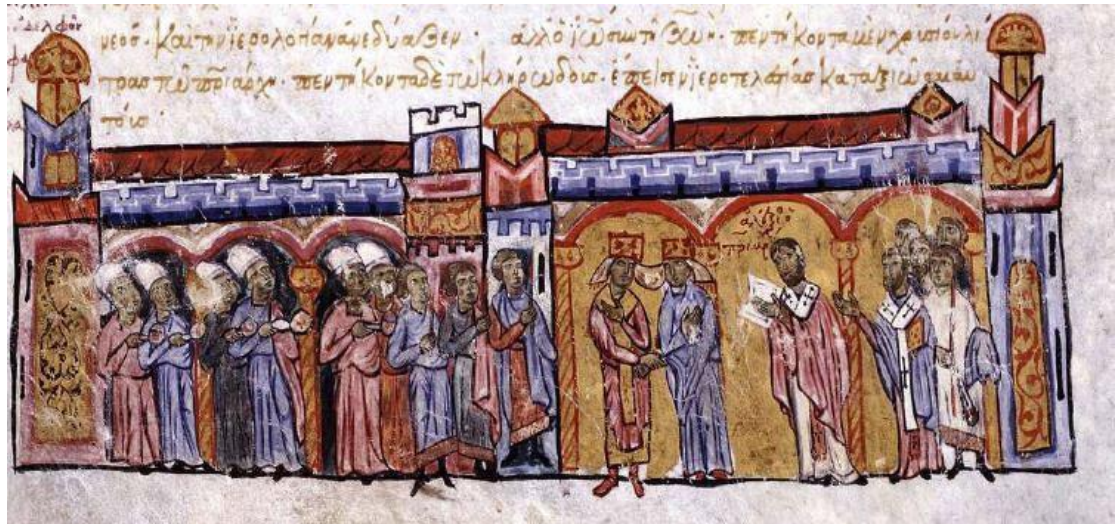 νεος· καὶ τὴν ἱερολογίαν ἀνεδύαζεν· ἀλλ ὁ ἰω σὺν τῇ ζωῇ· πεντήκοντα μὲν χρυσίου λί
τρας τῶ πριάρχη· πεντήκοντα δὲ τῶ κλήρω δοὺς· ἔπεισεν ἱεροτελεστίας καταξιῶσαι αὐ
τούς·
ἀλέξιος
πριάρχης